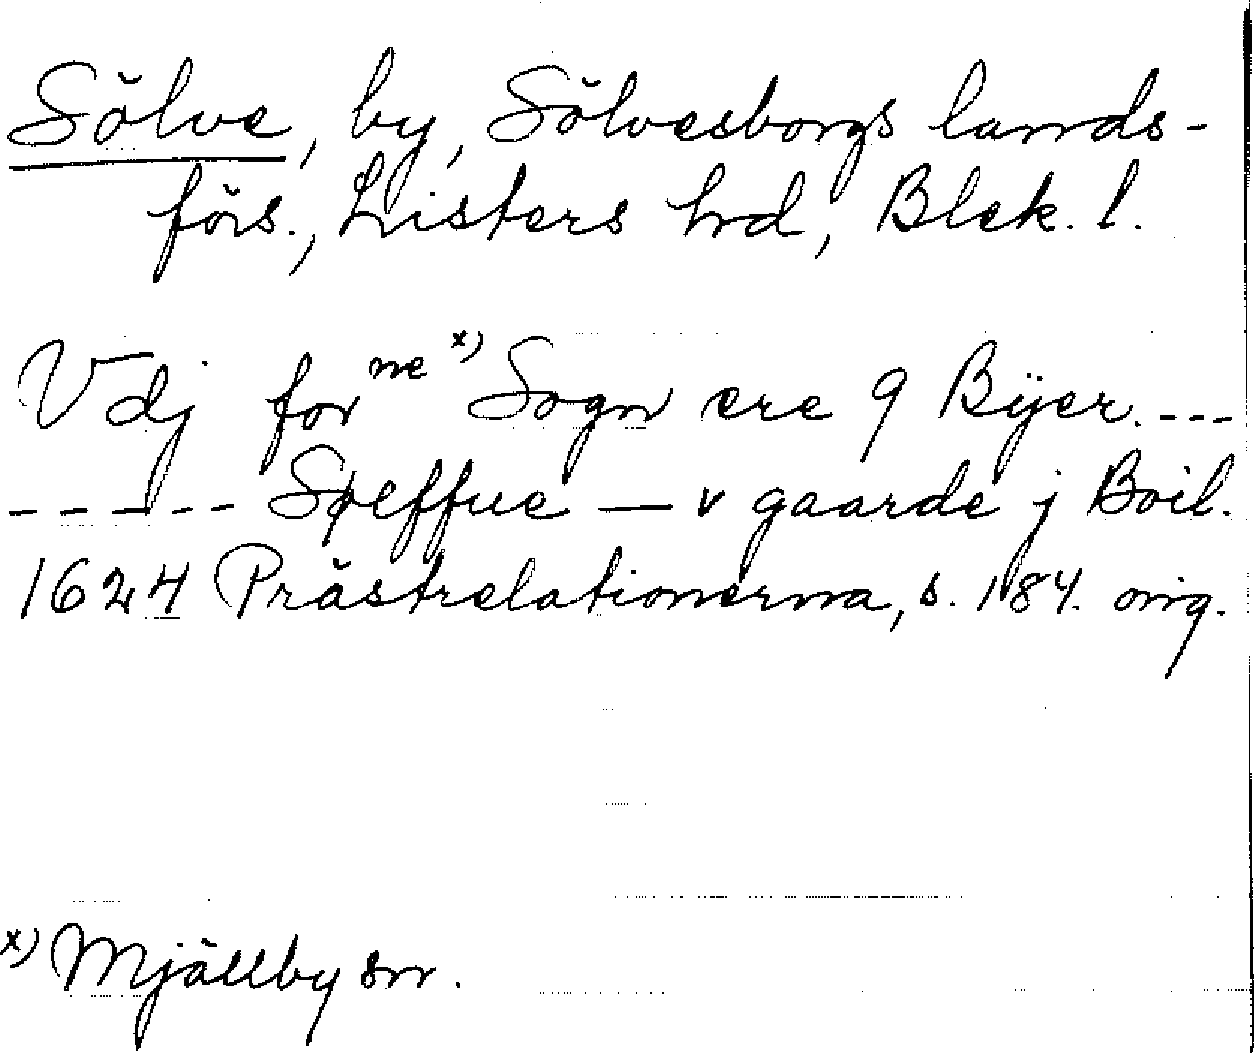 Sölve, by, Sölvesborgs lands-
förs., Listers hrd, Blek. l.
Vdj for ne x) Sogn ere 9 Bÿer. ---
------ Søeffue — v gaarde j Boil.
1624 Prästrelationerna, s. 184. orig.
x) Mjällby sn.